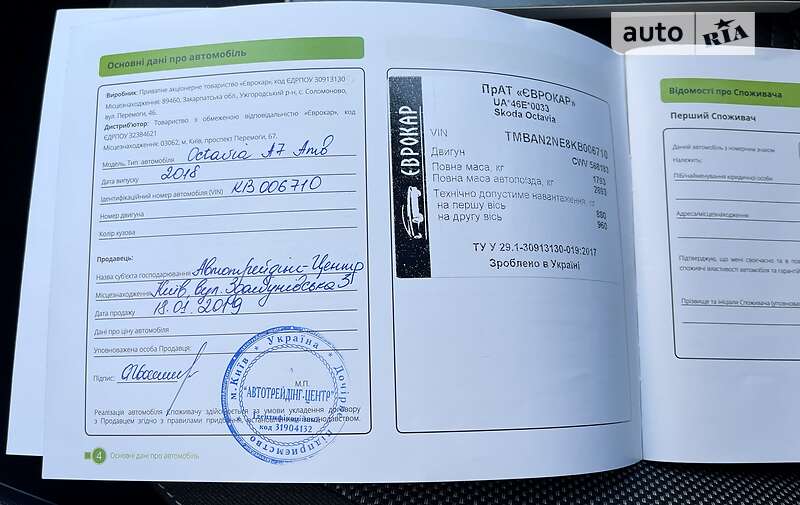 auto RIA
Основні дані про автомобіль
Виробник: Приватне акціонерне товариство «Єврокар», код ЄДРПОУ 30913130
Місцезнаходження: 89460, Закарпатська обл., Ужгородський р-н, с. Соломоново,
вул. Перемоги, 46.
Дистриб'ютор: Товариство з обмеженою відповідальністю «Єврокар», код
ЄДРПОУ 32384621
Місцезнаходження: 03062, м. Київ, проспект Перемоги, 67.
Модель, Тип автомобіля Octavia A7 Amb
Дата випуску 2018
Ідентифікаційний номер автомобіля (VIN) KB 006710
Номер двигуна
Колір кузова
Продавець:
Назва суб'єкта господарювання Автотрейдінг-Центр
Місцезнаходження Київ, вул.
Дата продажу 18.01.2019
Дані про ціну автомобіля
Уповноважена особа Продавця:
Підпис:
М.П.
Реалізація автомобіля Споживачу здійснюється за умови укладення договору
з Продавцем згідно з правилами законодавством.
м. Київ * Україна * Дочірнє підприємство
"АВТОТРЕЙДІНГ-ЦЕНТР"
Ідентифікаційний
код 31904132
4 Основні дані про автомобіль
ЄВРОКАР
ПрАТ «ЄВРОКАР»
UA*46E*0033
Skoda Octavia
VIN TMBAN2NE8KB006710
Двигун CWV 568183
Повна маса, кг 1793
Повна маса автопоїзда, кг 2893
Технічно допустиме навантаження, кг
на першу вісь 880
на другу вісь 960
ТУ У 29.1-30913130-019:2017
Зроблено в Україні
Відомості про Споживача
Перший Споживач
Даний автомобіль з номерним знаком
Належить:
ПІБ/найменування юридичної особи
Адреса/місцезнаходження:
Підтверджую, що мені своєчасно та в пов
споживчі властивості автомобіля та гарантій
Прізвище та ініціали Споживача (уповнов